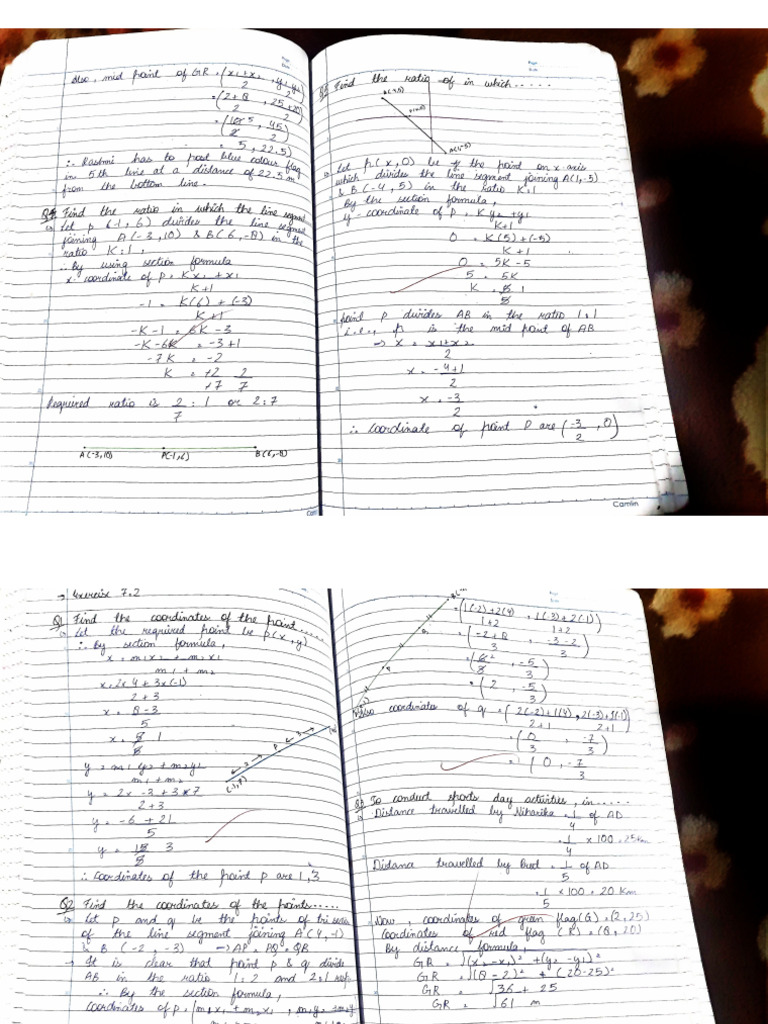 Also, mid point of GR = (x1+x2/2, y1+y2/2)
= (2+8/2, 25+20/2)
= (10 5/2, 45/2)
= 5, 22.5)
∴ Rashmi has to post blue colour flag
in 5th line at a distance of 22.5 m
from the bottom line.
Q4 Find the ratio in which the line segment
Let p (-1, 6) divides the line segment
joining A(-3,10) & B(6,-8) in the
ratio K:1,
∴ By using section formula
x- coordinate of p = Kx1 + x1
K+1
-1 = K(6) + (-3)
K+1
-K-1 = 6K-3
-K-6K = -3+1
-7K = -2
K = +2 2
+7 7
Required ratio is 2/7 : 1 or 2:7
A(-3,10) P(-1,6) B(6,-8)
Find the ratio of in which.....
A(1,-5)
Let P(x,0) be the point on x-axis
which divides the line segment joining A(1,-5)
& B(-4, 5) in the ratio K:1
By the section formula,
y- coordinate of P = Ky2+y1
K+1
0 = K(5)+(-5)
K+1
0 = 5K-5
5 = 5K
K = 5 1
5
point p divides AB in the ratio 1:1
i.e., p is the mid point of AB
⇒ x = x1+x2
2
x = -4+1
2
x = -3
2
∴ Coordinate of point P are (-3/2, 0)
Camlin
→ Exercise 7.2
Q1 Find the coordinates of the point.....
Let the required point be p(x,y)
∴ By section formula,
x = m1x2 + m2x1
m1 + m2
x = 2x4 + 3x(-1)
2+3
x = 8-3
5
x = 5 1
5
y = m1y2 + m2y1
m1+m2
y = 2x -3+3x7
2+3
y = -6+21
5
y = 15 3
5
∴ Coordinates of the point p are 1,3
Q2 Find the coordinates of the points.....
Let p and q be the points of tri section
of the line segment joining A(4,-1)
& B (-2, -3) → AP = PQ = QB
→ It is clear that point p & q divide
AB in the ratio 1:2 and 2:1 resp.
∴ By the section formula,
Coordinates of p = (m1x2 + m2x1, m1y2 + m2y1
= (1(-2)+2(4)/1+2, 1(-3)+2(-1)/1+2)
= (-2+8/3, -3-2/3)
= (6 2/3, -5/3)
= (2, -5/3)
Also coordinates of q = (2(-2)+1(4)/2+1, 2(-3)+1(-1)/2+1)
= (0/3, -7/3)
= (0, -7/3
Q3 To conduct sports day activities, in.....
Distance travelled by Niharika = 1/4 of AD
= 1/4 x 100 = 25 km
Distance travelled by Preet = 1/5 of AD
= 1/5 x 100 = 20 Km
Now, coordinates of green flag(G) = (2,25)
Coordinates of red flag (R) = (8, 20)
By distance formula,
GR = √(x2-x1)² + (y2-y1)²
GR = √(8-2)² + (20-25)²
GR = √36 + 25
GR = √61 m